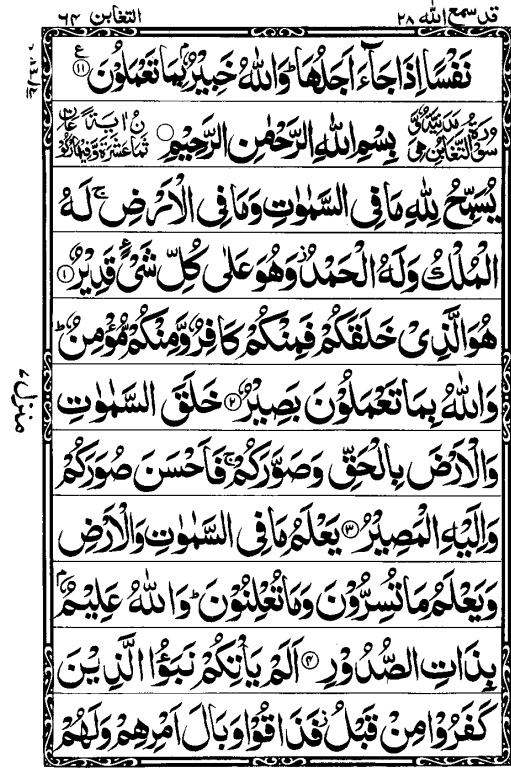 قد سمع الله ٢٨
التغابن ٦٤
نَفْسًا اِذَا جَآءَ اَجَلُهَا ؕ وَاللّٰهُ خَبِيْرٌۢ بِمَا تَعْمَلُوْنَ ۝۱۱ ع
سُوْرَةُ التَّغَابُنِ مَدَنِيَّةٌ وَّهِيَ
بِسْمِ اللّٰهِ الرَّحْمٰنِ الرَّحِيْمِ ۝
ثَمَانِيَ عَشْرَةَ اٰيَةً
يُسَبِّحُ لِلّٰهِ مَا فِى السَّمٰوٰتِ وَمَا فِى الْاَرْضِ ۚ لَهُ
الْمُلْكُ وَلَهُ الْحَمْدُ ؗ وَهُوَ عَلٰى كُلِّ شَىْءٍ قَدِيْرٌ ۝۱
هُوَ الَّذِىْ خَلَقَكُمْ فَمِنْكُمْ كَافِرٌ وَّمِنْكُمْ مُّؤْمِنٌ ؕ
وَاللّٰهُ بِمَا تَعْمَلُوْنَ بَصِيْرٌ ۝۲ خَلَقَ السَّمٰوٰتِ
وَالْاَرْضَ بِالْحَقِّ وَصَوَّرَكُمْ فَاَحْسَنَ صُوَرَكُمْ ۚ
وَاِلَيْهِ الْمَصِيْرُ ۝۳ يَعْلَمُ مَا فِى السَّمٰوٰتِ وَالْاَرْضِ
وَيَعْلَمُ مَا تُسِرُّوْنَ وَمَا تُعْلِنُوْنَ ؕ وَاللّٰهُ عَلِيْمٌۢ
بِذَاتِ الصُّدُوْرِ ۝۴ اَلَمْ يَاْتِكُمْ نَبَؤُا الَّذِيْنَ
كَفَرُوْا مِنْ قَبْلُ ؗ فَذَاقُوْا وَبَالَ اَمْرِهِمْ وَلَهُمْ
منزل ٧